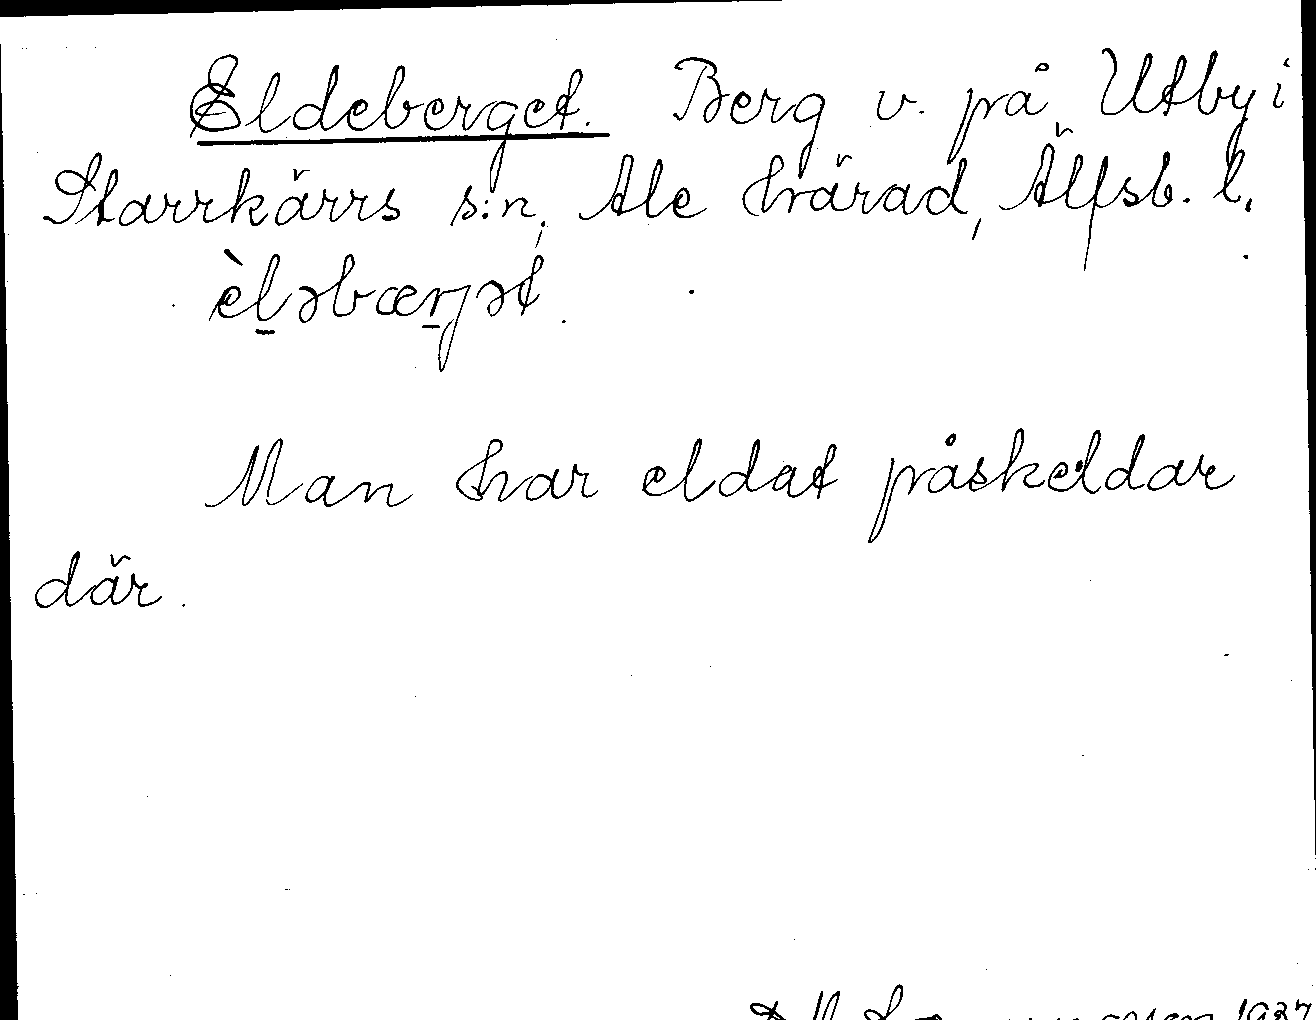 Eldeberget. Berg v. på Utby i
Starrkärrs s:n, Ale härad, Älfsb. l.
èl̠əbær̠jət.
Man har eldat påskeldar
där.
1937